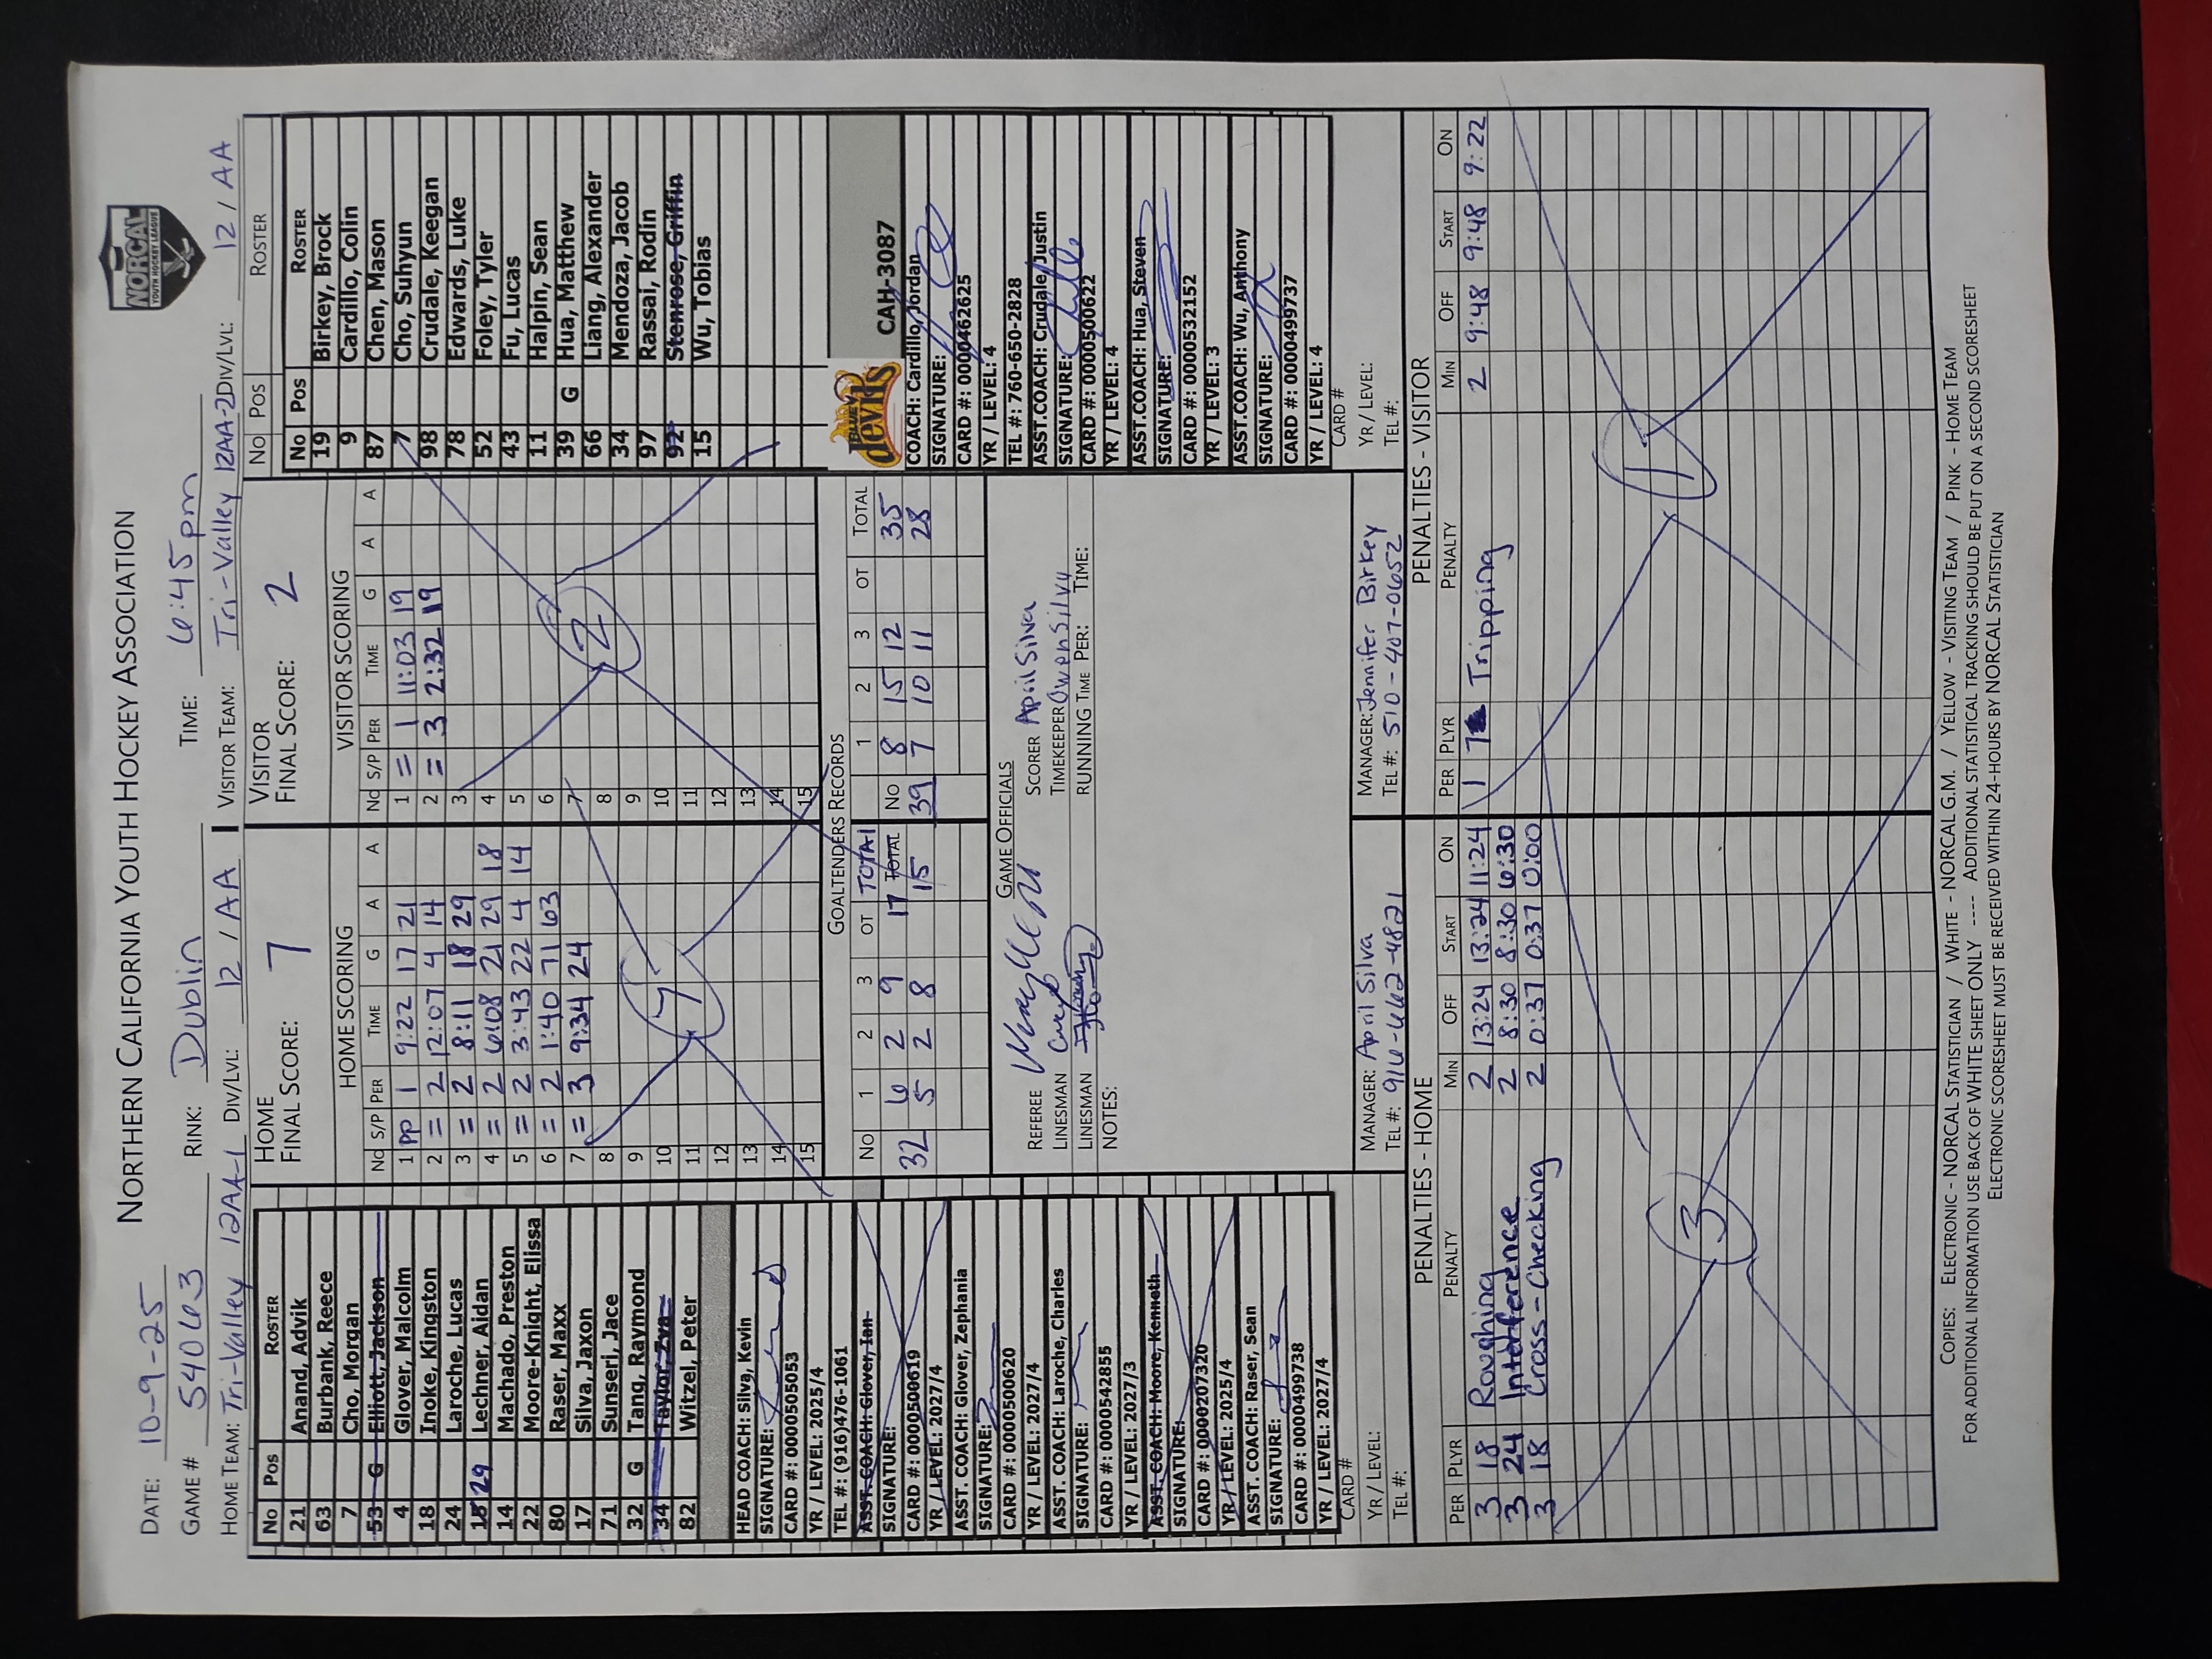 NORTHERN CALIFORNIA YOUTH HOCKEY ASSOCIATION
NORCAL
YOUTH HOCKEY LEAGUE
DATE: 10-9-25
GAME # 54063 RINK: Dublin TIME: 6:45 pm
HOME TEAM: Tri-Valley 12AA-1 DIV/LVL: 12 / AA VISITOR TEAM: Tri-Valley 12AA-2 DIV/LVL: 12 / AA
No Pos ROSTER
21 Anand, Advik
63 Burbank, Reece
7 Cho, Morgan
53 G Elliott, Jackson
4 Glover, Malcolm
18 Inoke, Kingston
24 Laroche, Lucas
18 29 Lechner, Aidan
14 Machado, Preston
22 Moore-Knight, Elissa
80 Raser, Maxx
17 Silva, Jaxon
71 Sunseri, Jace
32 G Tang, Raymond
34 Taylor, Zya
82 Witzel, Peter
HEAD COACH: Silva, Kevin
SIGNATURE:
CARD #: 0000505053
YR / LEVEL: 2025/4
TEL #: (916)476-1061
ASST. COACH: Glover, Ian
SIGNATURE:
CARD #: 0000500619
YR / LEVEL: 2027/4
ASST. COACH: Glover, Zephania
SIGNATURE:
CARD #: 0000500620
YR / LEVEL: 2027/4
ASST. COACH: Laroche, Charles
SIGNATURE:
CARD #: 0000542855
YR / LEVEL: 2027/3
ASST. COACH: Moore, Kenneth
SIGNATURE:
CARD #: 0000207320
YR / LEVEL: 2025/4
ASST. COACH: Raser, Sean
SIGNATURE:
CARD #: 0000499738
YR / LEVEL: 2027/4
CARD #
YR / LEVEL:
TEL #:
HOME
FINAL SCORE: 7
HOME SCORING
No S/P PER TIME G A A
1 PP 1 9:22 17 21
2 = 2 12:07 4 14
3 = 2 8:11 18 29
4 = 2 6:08 21 29 18
5 = 2 3:43 22 4 14
6 = 2 1:40 71 63
7 = 3 9:34 24
8
9
10
11
12
13
14
15
7
VISITOR
FINAL SCORE: 2
VISITOR SCORING
No S/P PER TIME G A A
1 = 1 11:03 19
2 = 3 2:32 19
3
4
5
6
7
8
9
10
11
12
13
14
15
2
GOALTENDERS RECORDS
No 1 2 3 OT TOTAL TOTAL No 1 2 3 OT TOTAL
32 6 2 9 17 39 8 15 12 35
5 2 8 15 7 10 11 28
GAME OFFICIALS
REFEREE SCORER April Silva
LINESMAN TIMEKEEPER Owen Silva
LINESMAN RUNNING TIME PER: TIME:
NOTES:
MANAGER: April Silva
TEL #: 916-662-4821
MANAGER: Jennifer Birkey
TEL #: 510-407-0652
No Pos ROSTER
No Pos ROSTER
19 Birkey, Brock
9 Cardillo, Colin
87 Chen, Mason
7 Cho, Suhyun
98 Crudale, Keegan
78 Edwards, Luke
52 Foley, Tyler
43 Fu, Lucas
11 Halpin, Sean
39 G Hua, Matthew
66 Liang, Alexander
34 Mendoza, Jacob
97 Rassai, Rodin
92 Stenrose, Griffin
15 Wu, Tobias
BLUE devils CAH-3087
COACH: Cardillo, Jordan
SIGNATURE:
CARD #: 0000462625
YR / LEVEL: 4
TEL #: 760-650-2828
ASST.COACH: Crudale, Justin
SIGNATURE:
CARD #: 0000500622
YR / LEVEL: 4
ASST.COACH: Hua, Steven
SIGNATURE:
CARD #: 0000532152
YR / LEVEL: 3
ASST.COACH: Wu, Anthony
SIGNATURE:
CARD #: 0000499737
YR / LEVEL: 4
CARD #
YR / LEVEL:
TEL #:
PENALTIES - HOME
PER PLYR PENALTY MIN OFF START ON
3 18 Roughing 2 13:24 13:24 11:24
3 24 Interference 2 8:30 8:30 6:30
3 18 Cross-Checking 2 0:37 0:37 0:00
3
PENALTIES - VISITOR
PER PLYR PENALTY MIN OFF START ON
1 7 Tripping 2 9:48 9:48 9:22
1
COPIES: ELECTRONIC - NORCAL STATISTICIAN / WHITE - NORCAL G.M. / YELLOW - VISITING TEAM / PINK - HOME TEAM
FOR ADDITIONAL INFORMATION USE BACK OF WHITE SHEET ONLY ---- ADDITIONAL STATISTICAL TRACKING SHOULD BE PUT ON A SECOND SCORESHEET
ELECTRONIC SCORESHEET MUST BE RECEIVED WITHIN 24-HOURS BY NORCAL STATISTICIAN